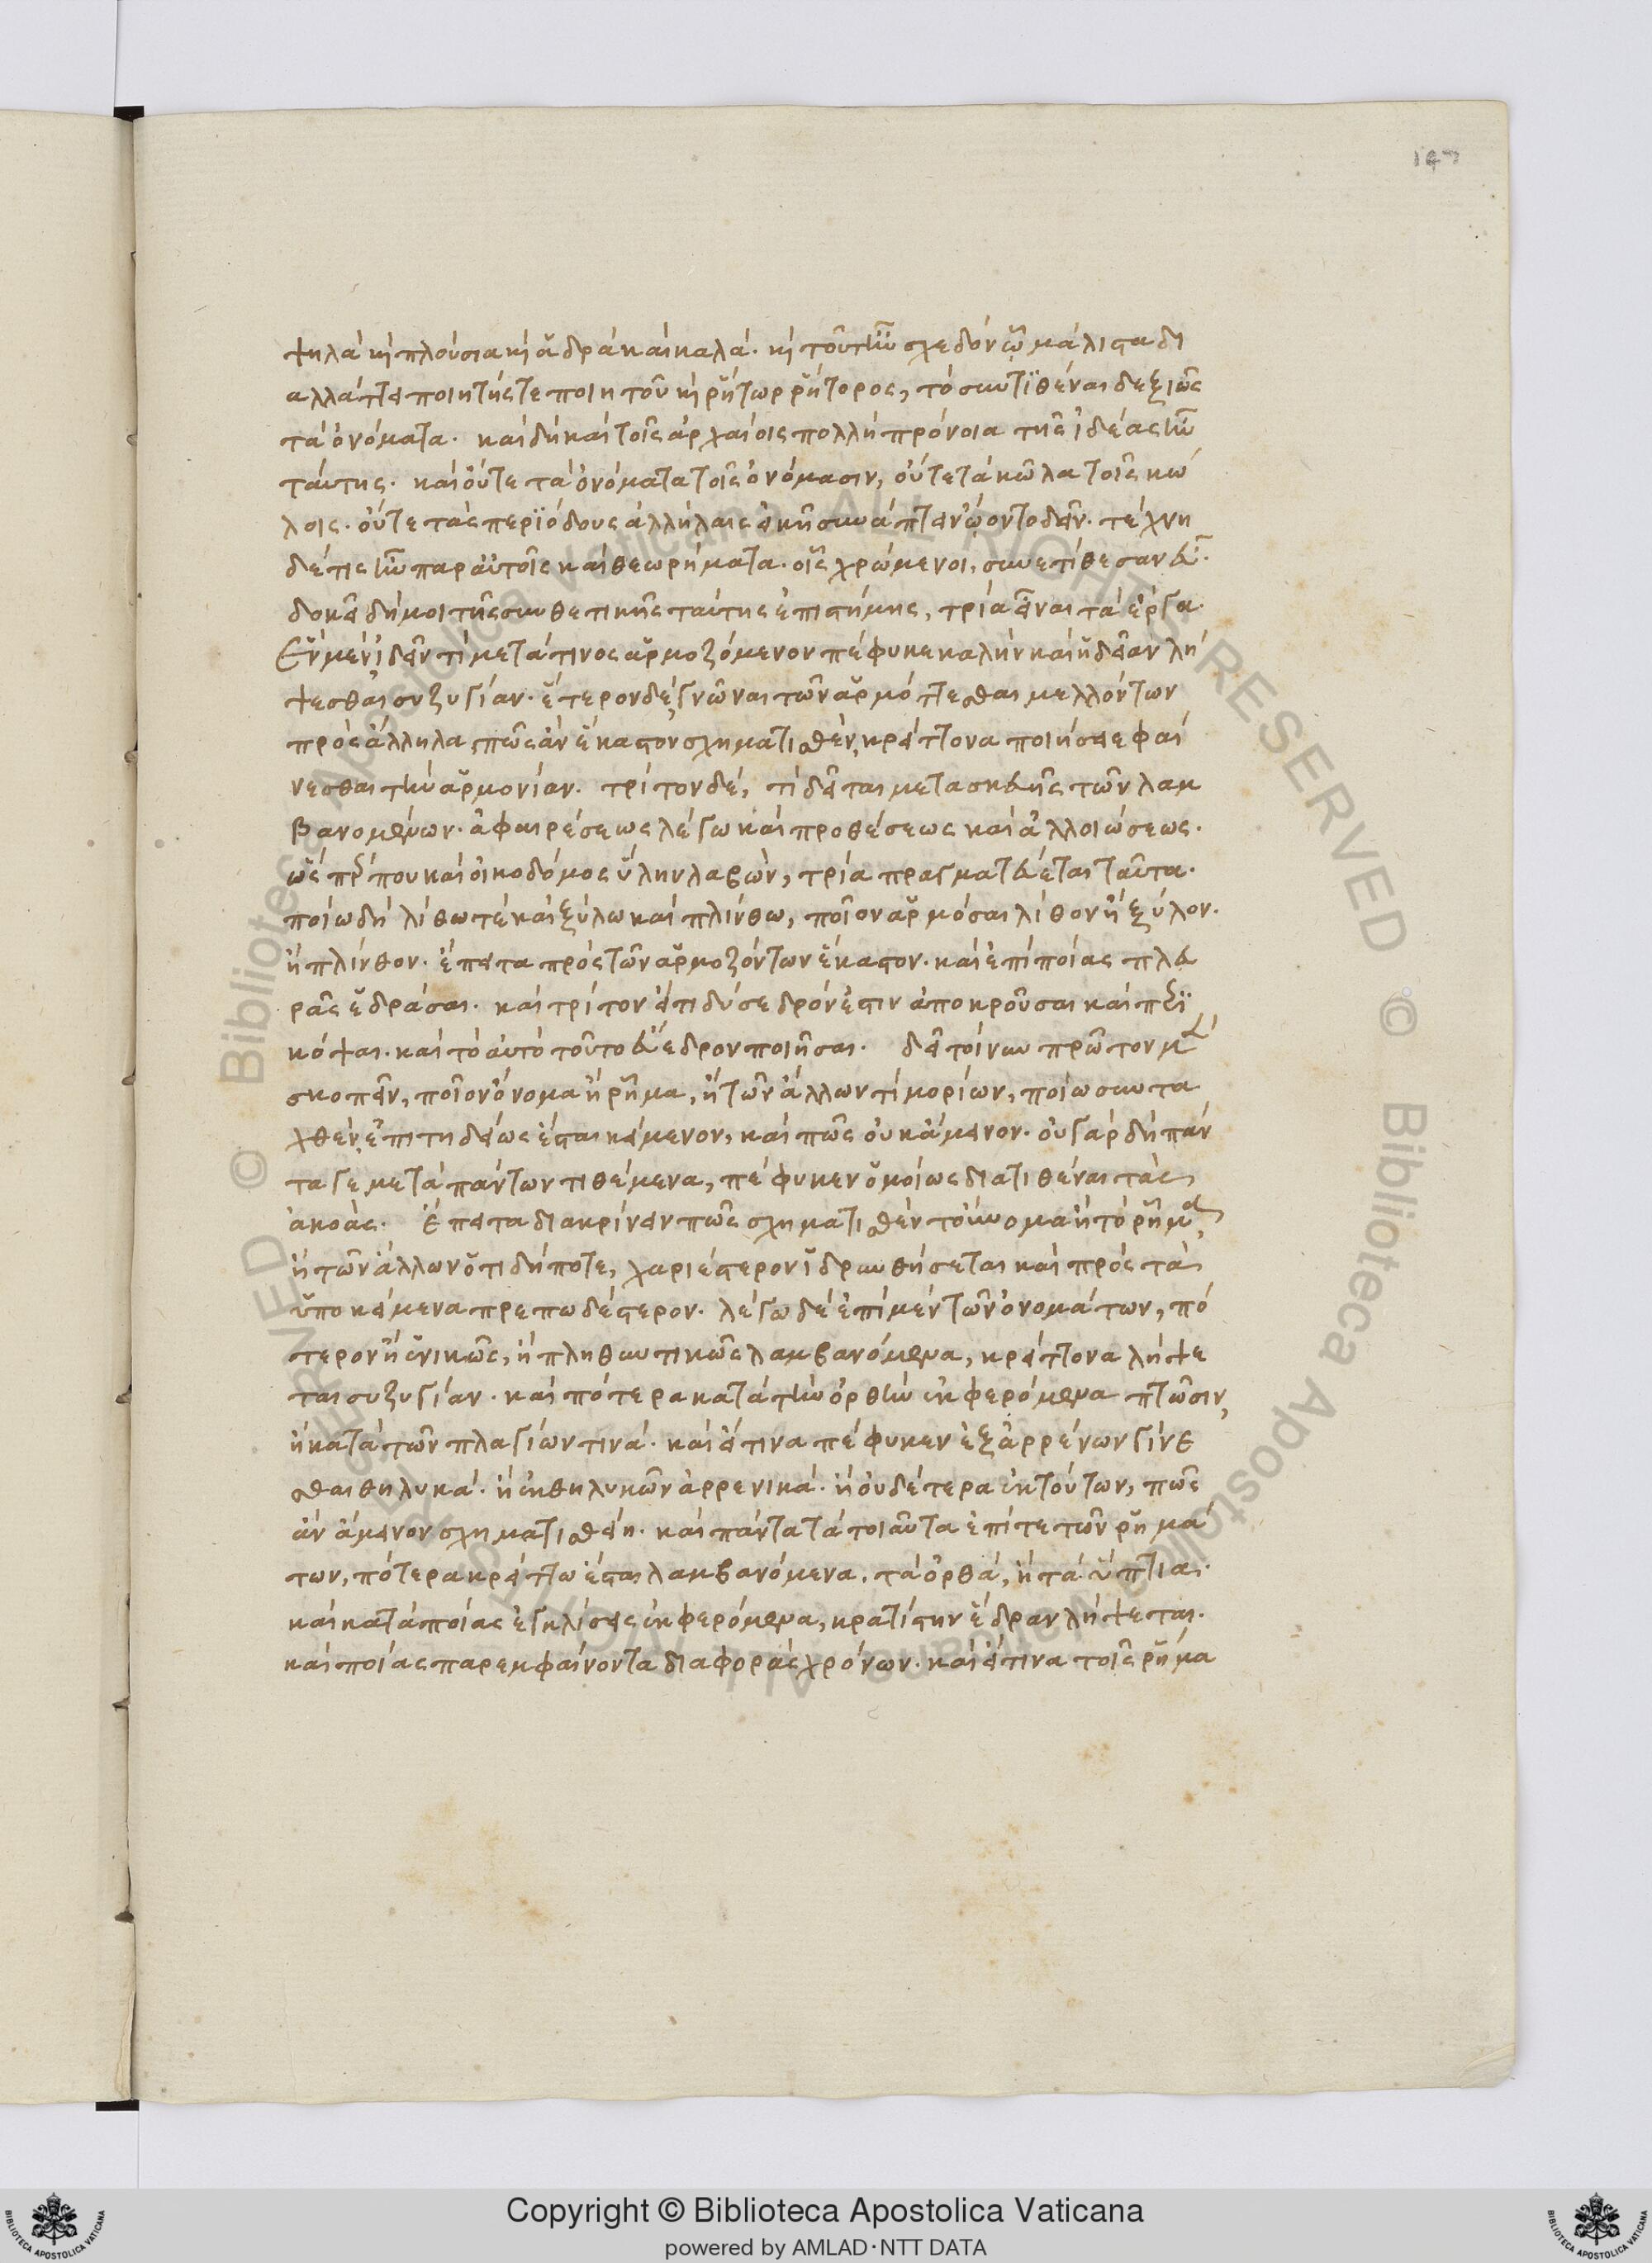 147
ψηλὰ καὶ πλούσια καὶ ἁδρὰ καὶ καλά. καὶ τοῦτ' ἦν σχεδὸν ᾧ μάλιστα δι
αλλάττει ποιητής τε ποιητοῦ καὶ ῥήτωρ ῥήτορος, τὸ συντιθέναι δεξιῶς
τὰ ὀνόματα. καὶ δὴ καὶ τοῖς ἀρχαίοις πολλὴ πρόνοια τῆς ἰδέας ἦν
ταύτης. καὶ οὔτε τὰ ὀνόματα τοῖς ὀνόμασιν, οὔτε τὰ κῶλα τοῖς κώ
λοις. οὔτε τὰς περιόδους ἀλλήλαις εἰκῆ συνάπτειν ᾤοντο δεῖν. τέχνη
δέ τις ἦν παρ' αὐτοῖς καὶ θεωρήματα. οἷς χρώμενοι, συνετίθεσαν εὖ.
δοκεῖ δή μοι τῆς συνθετικῆς ταύτης ἐπιστήμης, τρία εἶναι τὰ ἔργα.
Ἓν μὲν, ἰδεῖν τί μετὰ τίνος ἁρμοζόμενον πέφυκε καλὴν καὶ ἡδεῖαν λή
ψεσθαι συζυγίαν. ἕτερον δὲ, γνῶναι τῶν ἁρμόττεσθαι μελλόντων
πρὸς ἄλληλα, πῶς ἂν ἕκαστον σχηματισθὲν, κρείττονα ποιήσειε φαί
νεσθαι τὴν ἁρμονίαν. τρίτον δέ, τί δεῖται μετασκευῆς τῶν λαμ
βανομένων. ἀφαιρέσεως λέγω καὶ προσθέσεως καὶ ἀλλοιώσεως.
ποίῳ δὴ λίθῳ τε καὶ ξύλῳ καὶ πλίνθῳ, ποῖον ἁρμόσαι λίθον ἢ ξύλον.
ἢ πλίνθον. ἔπειτα πρὸς τῶν ἁρμοζόντων ἕκαστον. καὶ ἐπὶ ποίας πλευ
ρᾶς ἑδράσαι. καὶ τρίτον εἴ τι δύσεδρόν ἐστιν ἀποκροῦσαι καὶ περι
κόψαι. καὶ τὸ αὐτὸ τοῦτο εὔεδρον ποιῆσαι. δεῖ τοίνυν πρῶτον μὲν
σκοπεῖν, ποῖον ὄνομα ἢ ῥῆμα, ἢ τῶν ἄλλων τι μορίων, ποίῳ συντα
χθὲν, ἐπιτηδείως ἔσται κείμενον, καὶ πῶς οὐκ ἄμεινον. οὐ γὰρ δὴ πάν
τα γε μετὰ πάντων τιθέμενα, πέφυκεν ὁμοίως διατιθέναι τὰς
ἀκοάς. ἔπειτα διακρίνειν πῶς σχηματισθὲν τοὔνομα ἢ τὸ ῥῆμα,
ἢ τῶν ἄλλων ὅ τι δήποτε, χαριέστερον ἱδρυνθήσεται καὶ πρὸς τὰ
ὑποκείμενα πρεπωδέστερον. λέγω δὲ ἐπὶ μὲν τῶν ὀνομάτων, πό
τερον ἢ ἑνικῶς, ἢ πληθυντικῶς λαμβανόμενα, κρείττονα λήψε
ται συζυγίαν. καὶ πότερα κατὰ τὴν ὀρθὴν ἐκφερόμενα πτῶσιν,
ἢ κατὰ τῶν πλαγίων τινά. καὶ εἴ τινα πέφυκεν ἐξ ἀρρένων γίνε
σθαι θηλυκά. ἢ ἐκ θηλυκῶν ἀρρενικά. ἢ οὐδέτερα ἐκ τούτων, πῶς
ἂν ἄμεινον σχηματισθείη. καὶ πάντα τὰ τοιαῦτα ἐπί τε τῶν ῥημά
των, πότερα κρείττω ἔσται λαμβανόμενα, τὰ ὀρθά, ἢ τὰ ὕπτια.
καὶ κατὰ ποίας ἐγκλίσεις ἐκφερόμενα, κρατίστην ἕδραν λήψεται.
καὶ ποίας παρεμφαίνοντα διαφορὰς χρόνων. καὶ εἴ τινα τοῖς ῥήμα
Copyright © Biblioteca Apostolica Vaticana
powered by AMLAD·NTT DATA